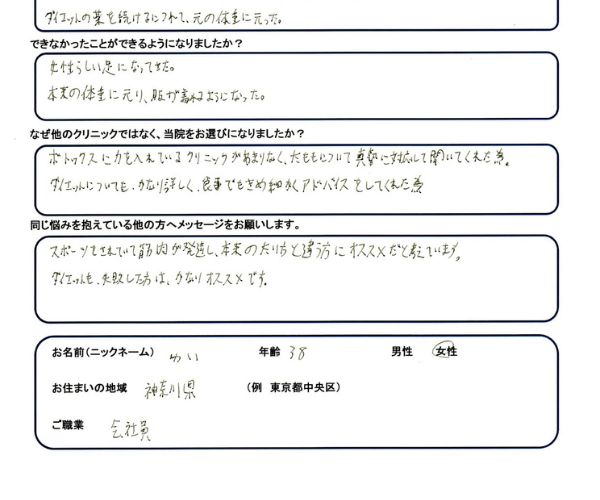 ダイエットの薬を続けるにつれて、元の体重に元った。
できなかったことができるようになりましたか？
女性らしい足になってきた。
本来の体重に元り、服が着れるようになった。
なぜ他のクリニックではなく、当院をお選びになりましたか？
ボトックスに力を入れているクリニックがあまりなく、だもについて真摯に対応して聞いてくれた為。
ダイエットについても、かなり詳しく、食事でもきめ細かくアドバイスをしてくれた為
同じ悩みを抱えている他の方へメッセージをお願いします。
スポーツをされていて筋肉が発達し、本来のなり方と違う方にオススメだと考えています。
ダイエットも、失敗した方は、かなりオススメです。
お名前（ニックネーム） ゆい 年齢 38 男性 女性
お住まいの地域 神奈川県 （例 東京都中央区）
ご職業 会社員